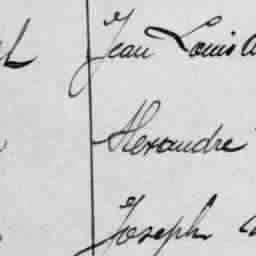 Jean Louis
Alexandre
Joseph